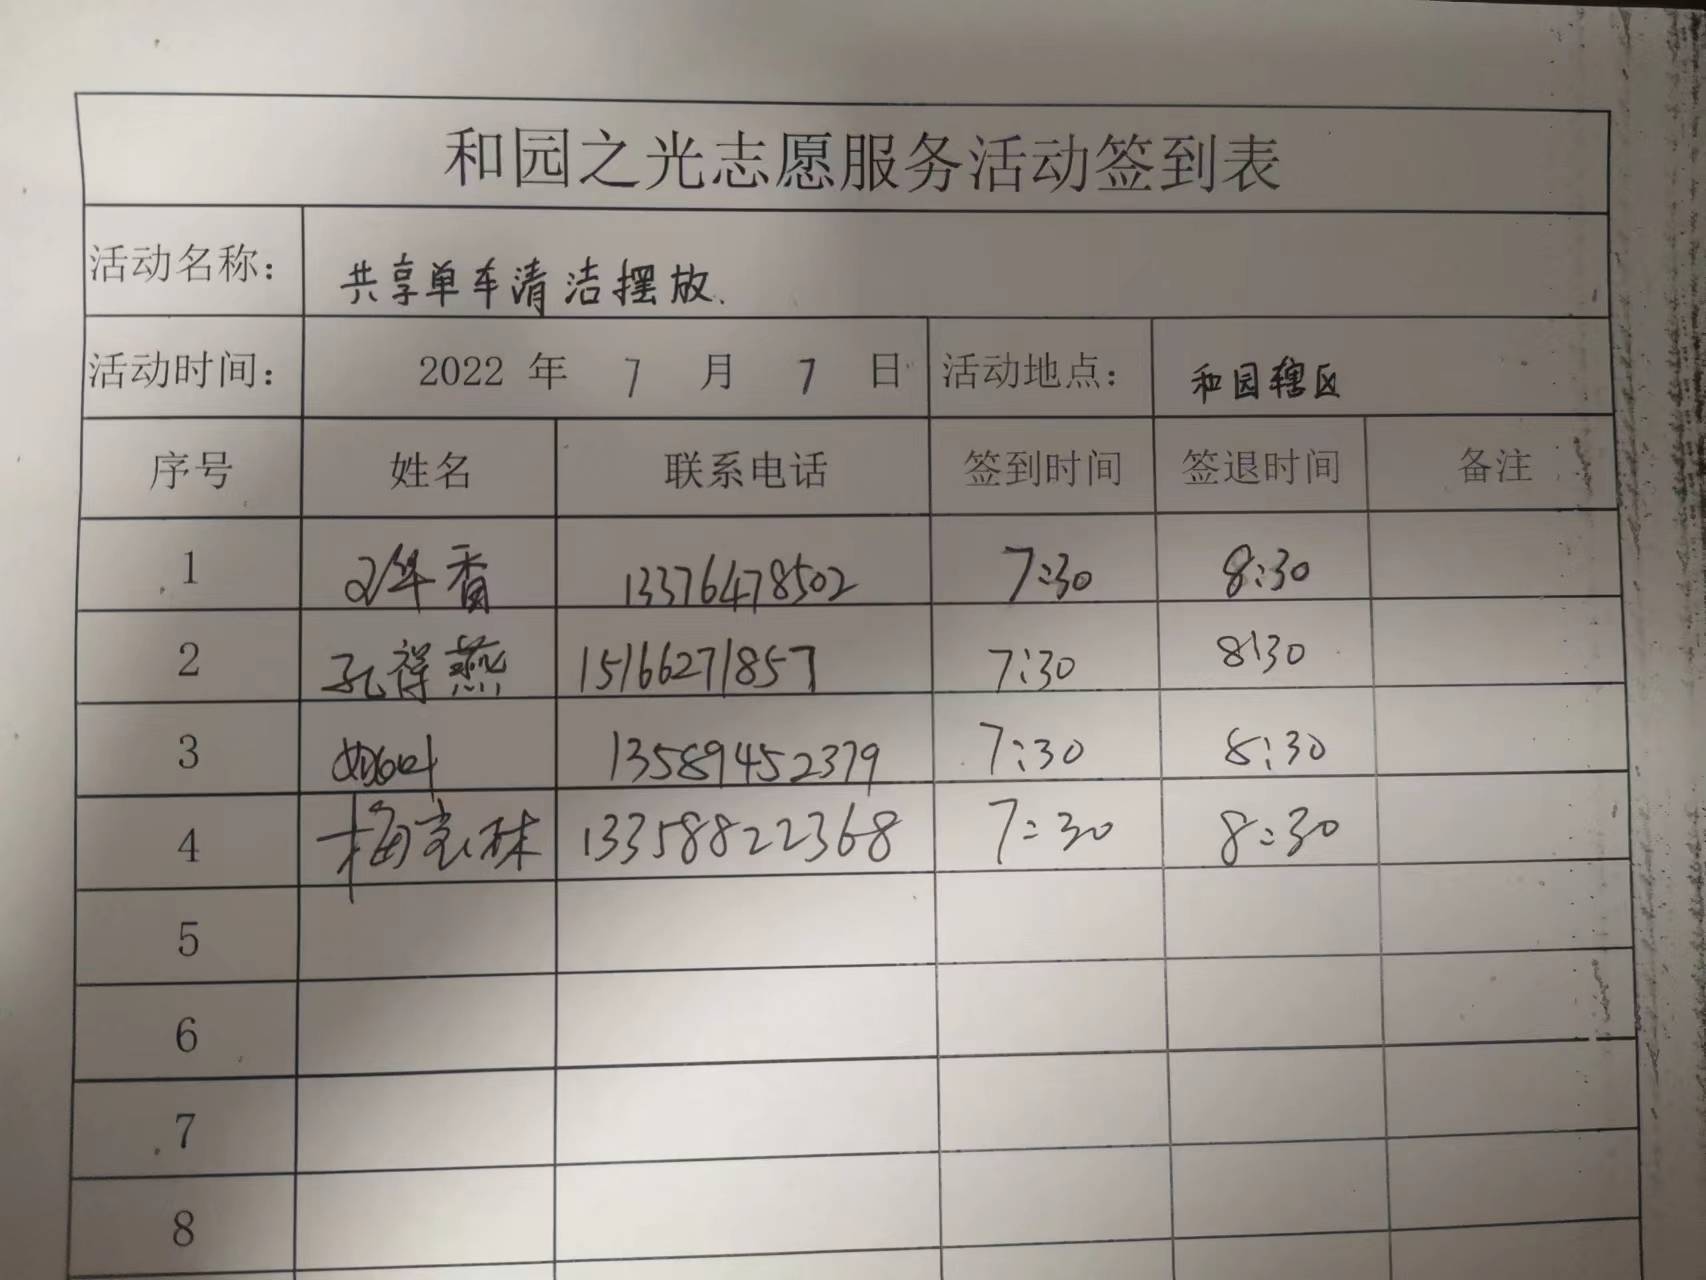 和园之光志愿服务活动签到表
活动名称: 共享单车清洁摆放.
活动时间: 2022 年 7 月 7 日 活动地点: 和园辖区
序号 姓名 联系电话 签到时间 签退时间 备注
1 香 13376478502 7:30 8:30
2 孔祥燕 15166271857 7:30 8:30
3 13589452379 7:30 8:30
4 梅林 13358822368 7:30 8:30
5
6
7
8